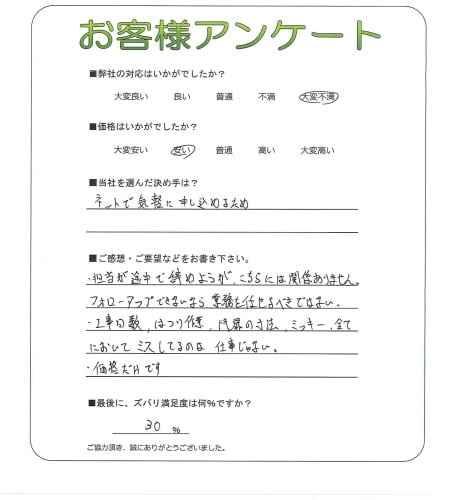 お客様アンケート
■弊社の対応はいかがでしたか？
大変良い 良い 普通 不満 大変不満
■価格はいかがでしたか？
大変安い 安い 普通 高い 大変高い
■当社を選んだ決め手は？
ネットで気軽に申し込めるため
■ご感想・ご要望などをお書き下さい。
・担当が途中で辞めようが、こちらには関係ありません。
フォローアップできないなら業務を任せるべきではない。
・工事日数、はつり作業、門扉の寸法、ミッキー、全て
においてミスしてるのは仕事じゃない。
・価格だけです
■最後に、ズバリ満足度は何%ですか？
30 %
ご協力頂き、誠にありがとうございました。